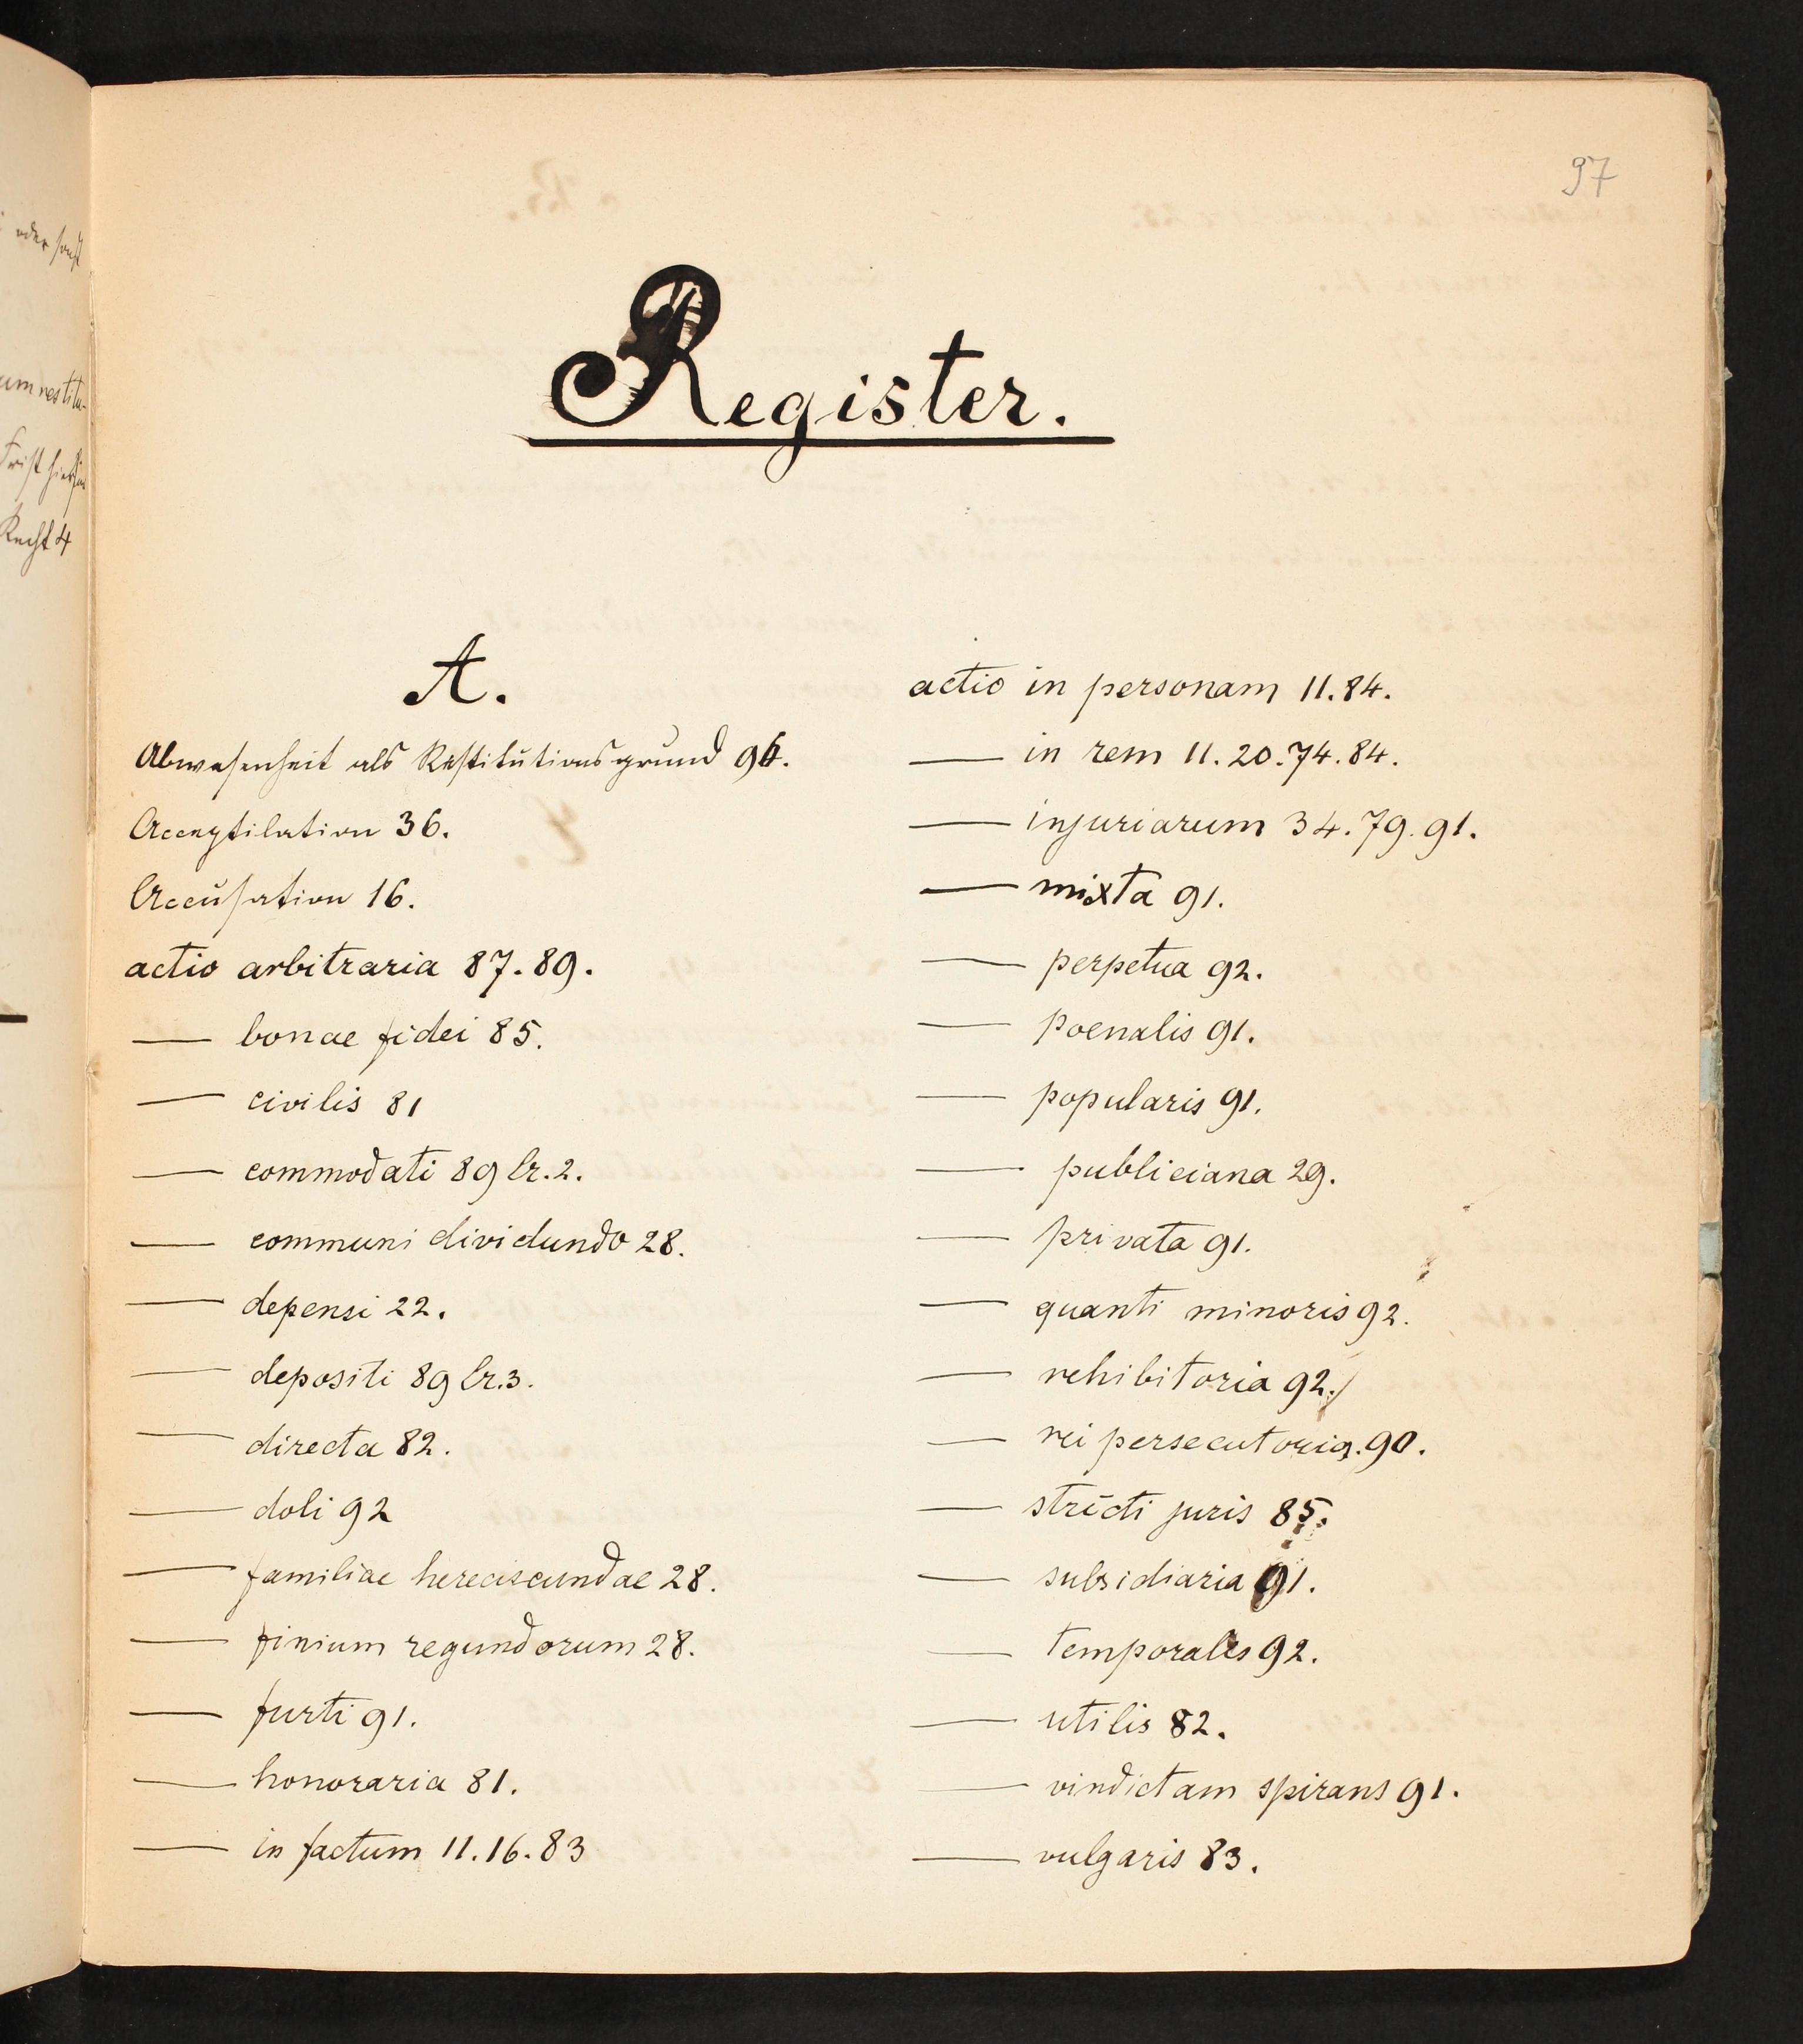 97
Register.
A.
Abwesenheit als Restitutionsgrund 96.
Acceptilation 36.
Accusation 16.
actio arbitraria 87. 89.
— bonae fidei 85.
— civilis 81
— commodati 89 lr. 2.
— communi dividundo 28.
— depensi 22.
— depositi 89 lr. 3.
— directa 82.
— doli 92
— familiae herciscundae 28.
— finium regundorum 28.
— furti 91.
— honoraria 81.
— in factum 11. 16. 83
actio in personam 11. 84.
— in rem 11. 20. 74. 84.
— injuriarum 34. 79. 91.
— mixta 91.
— perpetua 92.
— poenalis 91.
— popularis 91.
— publiciana 29.
— privata 91.
— quanti minoris 92.
— rehibitoria 92.
— rei persecutoria. 90.
— stricti juris 85.
— subsidiaria 91.
— temporales 92.
— utilis 82.
— vindictam spirans 91.
— vulgaris 83.
oder sonst
um restitu-
Frist
Recht 4